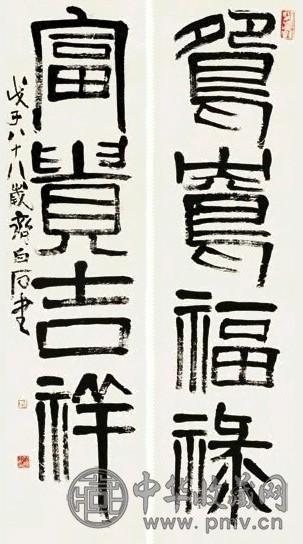 鴛鴦福祿
富貴吉祥
戊子八十八歲齊白石書
中华收藏网